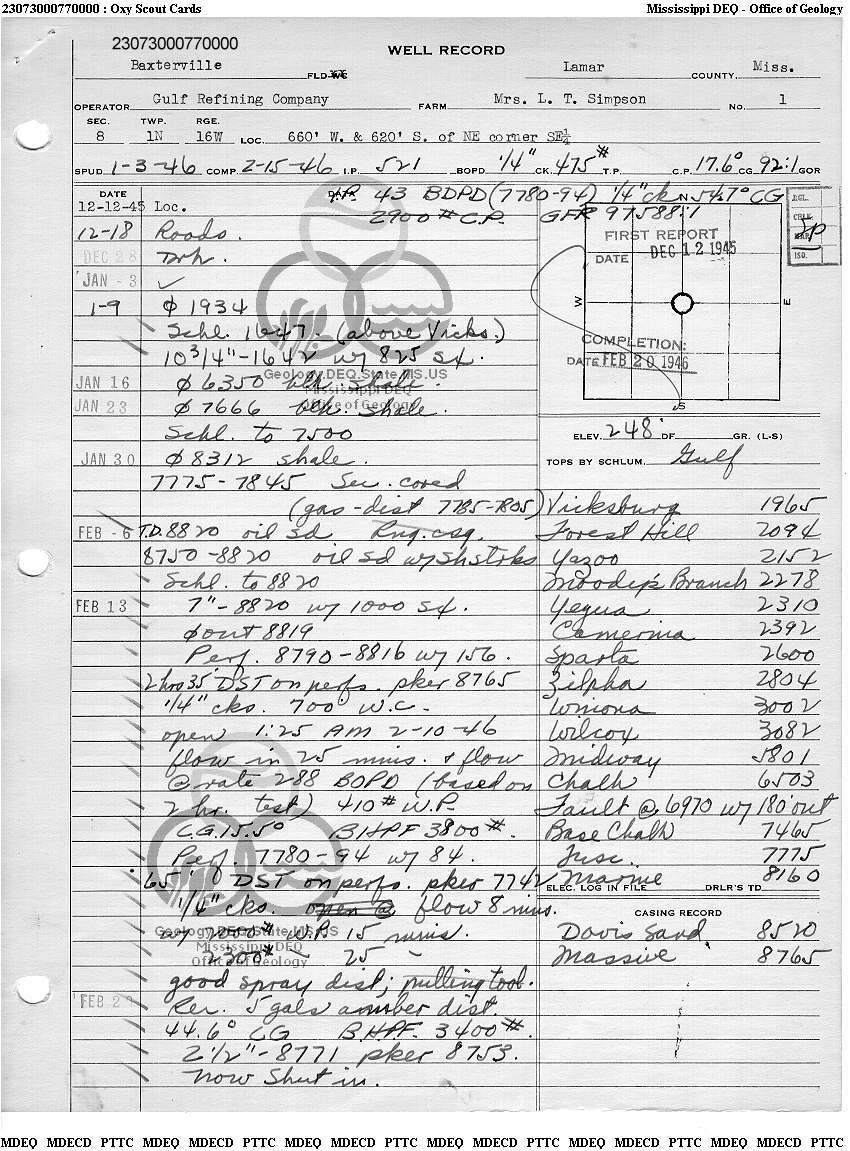 23073000770000 : Oxy Scout Cards
Mississippi DEQ - Office of Geology
23073000770000
WELL RECORD
Baxterville FLD-WC Lamar COUNTY, Miss.
OPERATOR Gulf Refining Company FARM Mrs. L. T. Simpson NO. 1
SEC. TWP. RGE.
8 1N 16W LOC. 660' W. & 620' S. of NE corner SE¼
SPUD 1-3-46 COMP. 2-15-46 I.P. 521 BOPD 1/4" CK. 475# T.P. C.P. 17.6° CG 92:1 GOR
DATE I.P. 43 BDPD (7780-94) 1/4" ck 54.7° CG
12-12-45 Loc. 2900# C.P. GFR 97588:1
12-18 Roads.
DEC 28 Drlg.
JAN - 3 ✓
1-9 ϕ 1934
Schl. 1647 - (above Vicks.)
10 3/4" - 1642 w/ 825 sx.
JAN 16 ϕ 6350 blk. shale.
JAN 23 ϕ 7666 blk. shale.
Schl. to 7500
JAN 30 ϕ 8312 shale.
7775 - 7845 Sec. cored
(gas-dist 7785-7805)
FEB - 6 T.D. 8820 oil sd Rng. csg.
8750 - 8820 oil sd w/ sh strks
Schl. to 8820
FEB 13 7" - 8820 w/ 1000 sx.
ϕ out 8819
Perf. 8790 - 8816 w/ 156.
2 hrs 35" DST on perfs. pker 8765
1/4" cks. 700' W.C.
open 1:25 AM 2-10-46
flow in 25 mins. & flow
@ rate 288 BOPD (based on
2 hr. test) 410# W.P.
C.G. 15.5° BHPF 3800#.
Perf. 7780 - 94 w/ 84.
65" DST on perfs. pker 7742
1/4" cks. open @ flow 8 mins.
w/ 2000# W.P. 15 mins.
2300# ~ 25 ~
good spray dist; pulling tool.
FEB 2 Rec. 5 gals amber dist.
44.6° CG B.H.P.F. 3400#.
2 1/2" - 8771 pker 8753.
Now Shut in.
RGL.
MAR.
ISO.
N
FIRST REPORT
DATE DEC 12 1945
W E
COMPLETION:
DATE FEB 20 1946
S
ELEV. 248' DF GR. (L-S)
TOPS BY SCHLUM. Gulf
Vicksburg 1965
Forest Hill 2094
Yazoo 2152
Moody's Branch 2278
Yegua 2310
Camerina 2392
Sparta 2600
Zilpha 2804
Winona 3002
Wilcox 3082
Midway 5801
Chalk 6503
Fault @ 6970 w/ 180' out
Base Chalk 7465
Tusc. 7775
Marine 8160
ELEC. LOG IN FILE DRLR'S TD
CASING RECORD
Davis Sand 8520
Massive 8765
Geology.DEQ.State.MS.US
Mississippi DEQ
Office of Geology
Geology.DEQ.State.MS.US
Mississippi DEQ
Office of Geology
MDEQ MDECD PTTC MDEQ MDECD PTTC MDEQ MDECD PTTC MDEQ MDECD PTTC MDEQ MDECD PTTC MDEQ MDECD PTTC